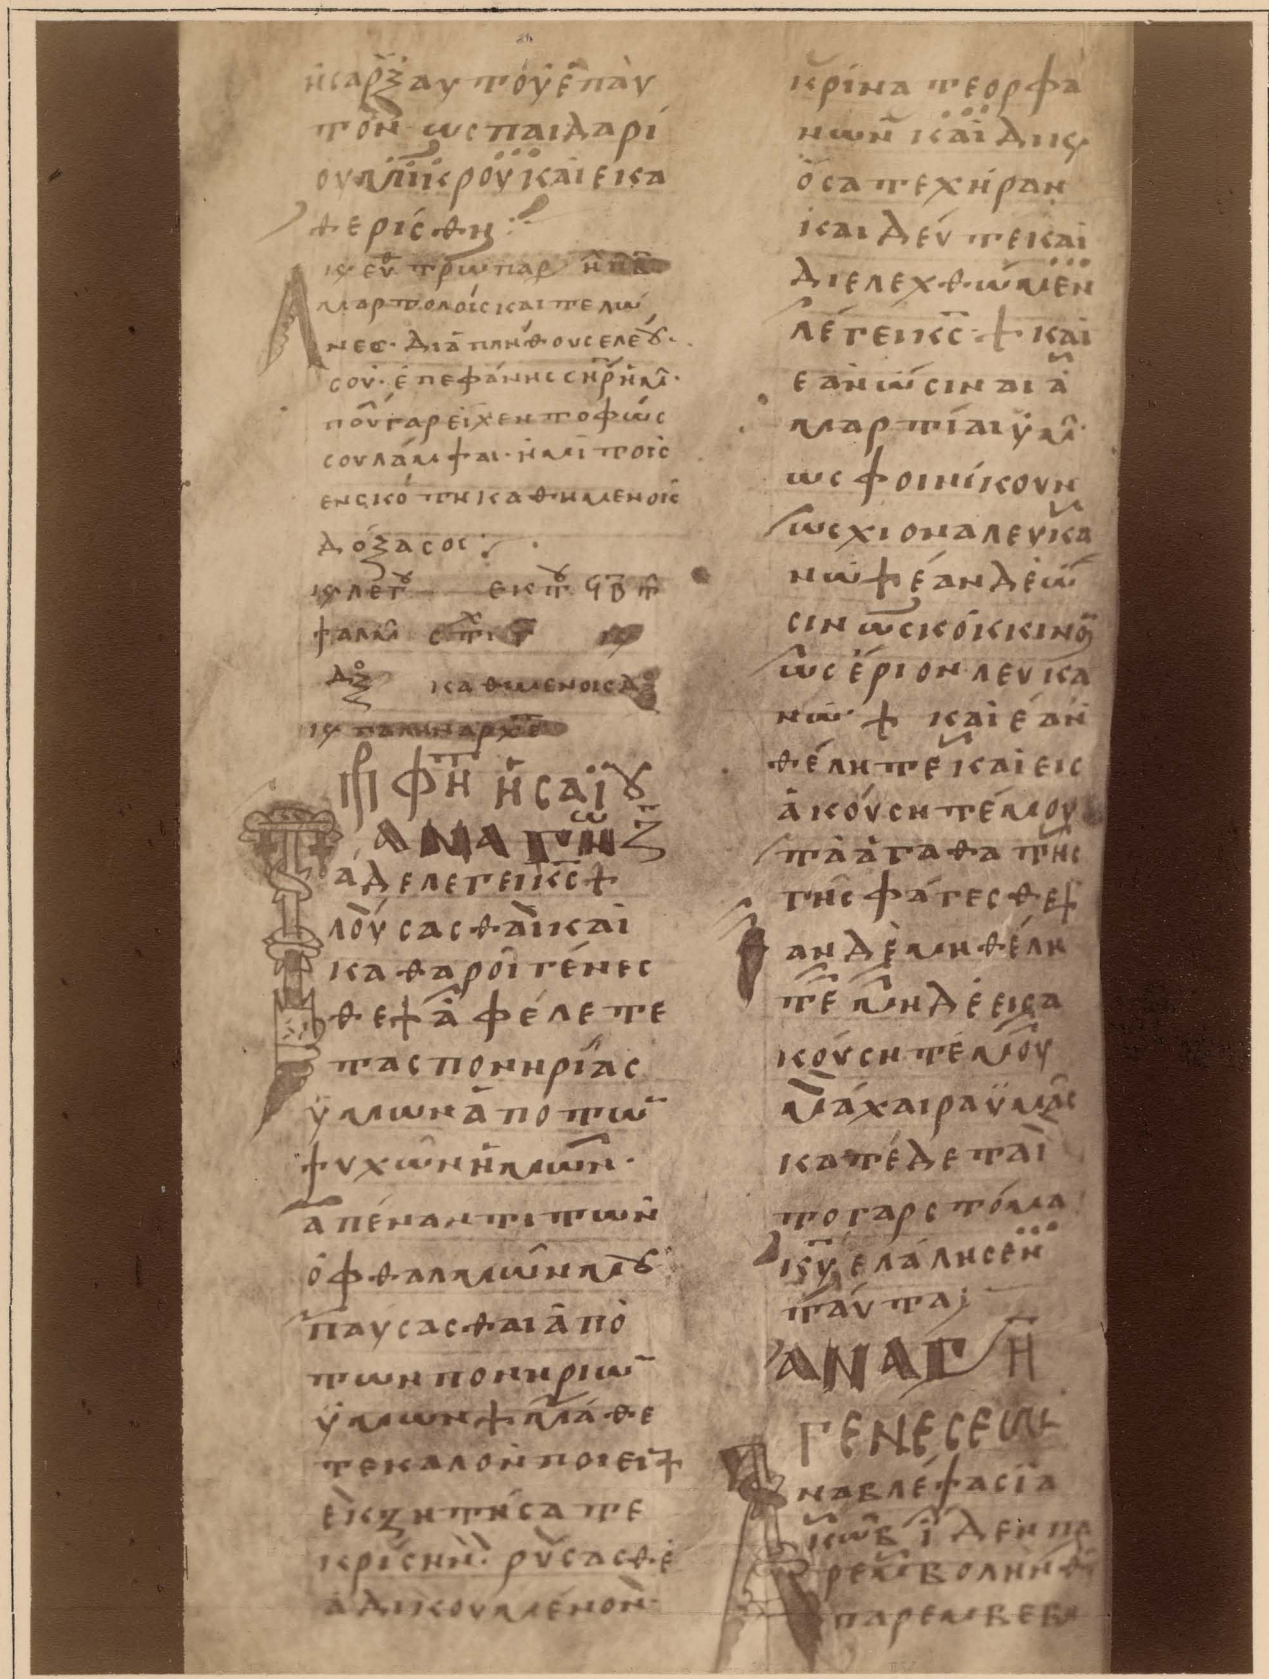 ἡ σὰρξ αυτοῦ ἐπ αυ
τὸν ὡς παιδαρί
ου μικροῦ και εκα
θερίσθη
αμαρτολοίς και τελώ
νες διὰ πλήθους ελέου
σού ἐπεφάννης σηρ ημ
ποῦ γαρ εἶχεν το φώς
σου λάμψαι ημι τοις
εν σκότη καθημενοις
δόξα σοι
καθημενοις
παλην αρχ
προφητ ησαΐου
αναγν
Τάδε λεγει κς
λούσασθαι και
καθαροι γένεσ
θε ἀφέλετε
τας πονηρίας
ὑμων ἀπο των
ψυχῶν ἡμῶν
ἀπέναντι των
ὀφθαλμῶν μου
παυσασθαι ἀπὸ
των πονηριῶ
ὑμων μάθε
τε καλον ποιει
ἐκζητήσατε
κρίσην ρύσασθε
ἀδικουμένον
κρίνατε ορφα
νων και δικε
ὅσατε χήραν
και δεύτε και
διελεχθωμεν
λέγει κς και
εὰν ὦσιν αι ἁ
μαρτίαι ὑμ
ως φοινίκουν
ως χιονα λευκα
νω εάν δε ὦ
σιν ως κόκκινον
ὡς ἔριον λευκα
νω και εὰν
θέλητε και εις
ἀκούσητέ μου
τὰ ἀγαθα της
γης φάγεσθε
εαν δε μη θέλη
τε μηδὲ εισα
κούσητέ μου
μάχαιρα ὑμας
κατέδεται
το γαρ στόμα
κυ ελάλησεν
ταύτα
ΑΝΑΓΝ
ΓΕΝΕΣΕΩΣ
Αναβλέψας ια
κωβ ἰδεν πα
ρεμβολην θυ
παρεμβεβ